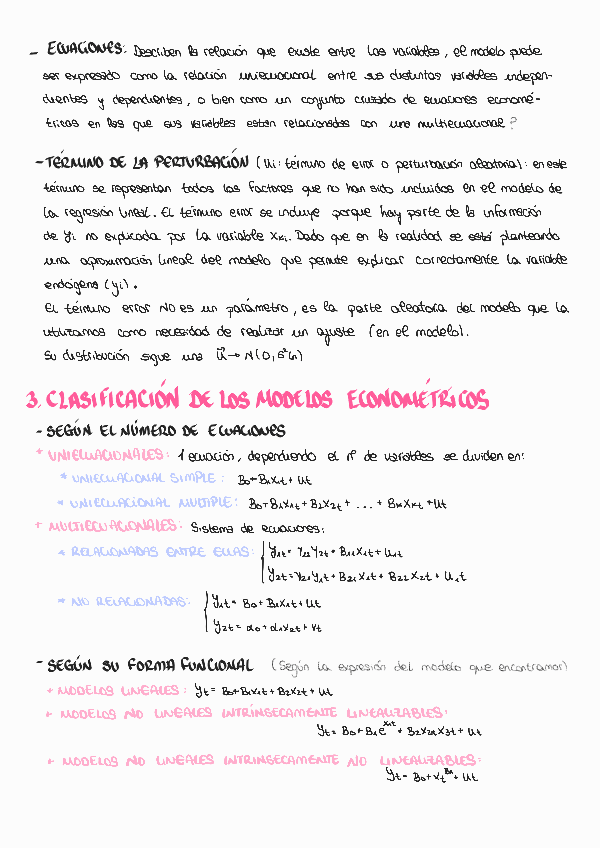 - ECUACIONES: Describen la relación que existe entre las variables, el modelo puede
ser expresado como la relación uniecuacional entre sus distintas variables indepen-
dientes y dependientes, o bien como un conjunto cruzado de ecuaciones economé-
tricas en las que sus variables estan relacionadas con una multiecuacional ?
- TÉRMINO DE LA PERTURBACIÓN (Ui: término de error o perturbación aleatoria): en este
término se representan todos los factores que no han sido incluidos en el modelo de
la regresión lineal. El término error se incluye porque hay parte de la información
de yi no explicada por la variable Xki. Dado que en la realidad se está planteando
una aproximación lineal del modelo que permite explicar correctamente la variable
endógena (yi).
El término error NO es un parámetro, es la parte aleatoria del modelo que la
utilizamos como necesidad de realizar un ajuste (en el modelo).
Su distribución sigue una
3. CLASIFICACIÓN DE LOS MODELOS ECONOMÉTRICOS
- SEGÚN EL NÚMERO DE ECUACIONES
* UNIECUACIONALES: 1 ecuación, dependiendo el nº de variables se dividen en:
* UNIECUACIONAL SIMPLE: B0+B1X1t+Ut
* UNIECUACIONAL MULTIPLE: B0+B1X1t+B2X2t+...+BkXkt+Ut
+ MULTIECUACIONALES: Sistema de ecuaciones:
* RELACIONADAS ENTRE ELLAS:
* NO RELACIONADAS: y1t= B0+B1X1t+Ut
y2t= α0+α1X2t+Vt
- SEGÚN SU FORMA FUNCIONAL (Según la expresión del modelo que encontramos)
+ MODELOS LINEALES: yt= B0+B1X1t+B2X2t+Ut
+ MODELOS NO LINEALES INTRÍNSECAMENTE LINEALIZABLES:
+ MODELOS NO LINEALES INTRINSECAMENTE NO LINEALIZABLES: